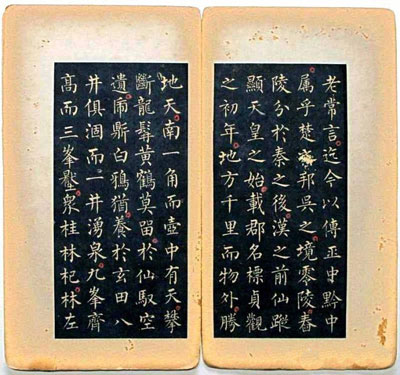 老常言迄今以傳正中黔中
属乎楚之邦吳之境零陵舂
陵分於秦之後漢之前仙蹤
顯天皇之始載郡名標貞觀
之初年地方千里而物外勝
地天南一角而壺中有天攀
斷龍髯黃鶴莫留於仙馭空
遺鼎白鴉猶養於玄田八
井俱涸而一井湧泉九峯齊
高而三峯衆桂林杞林左